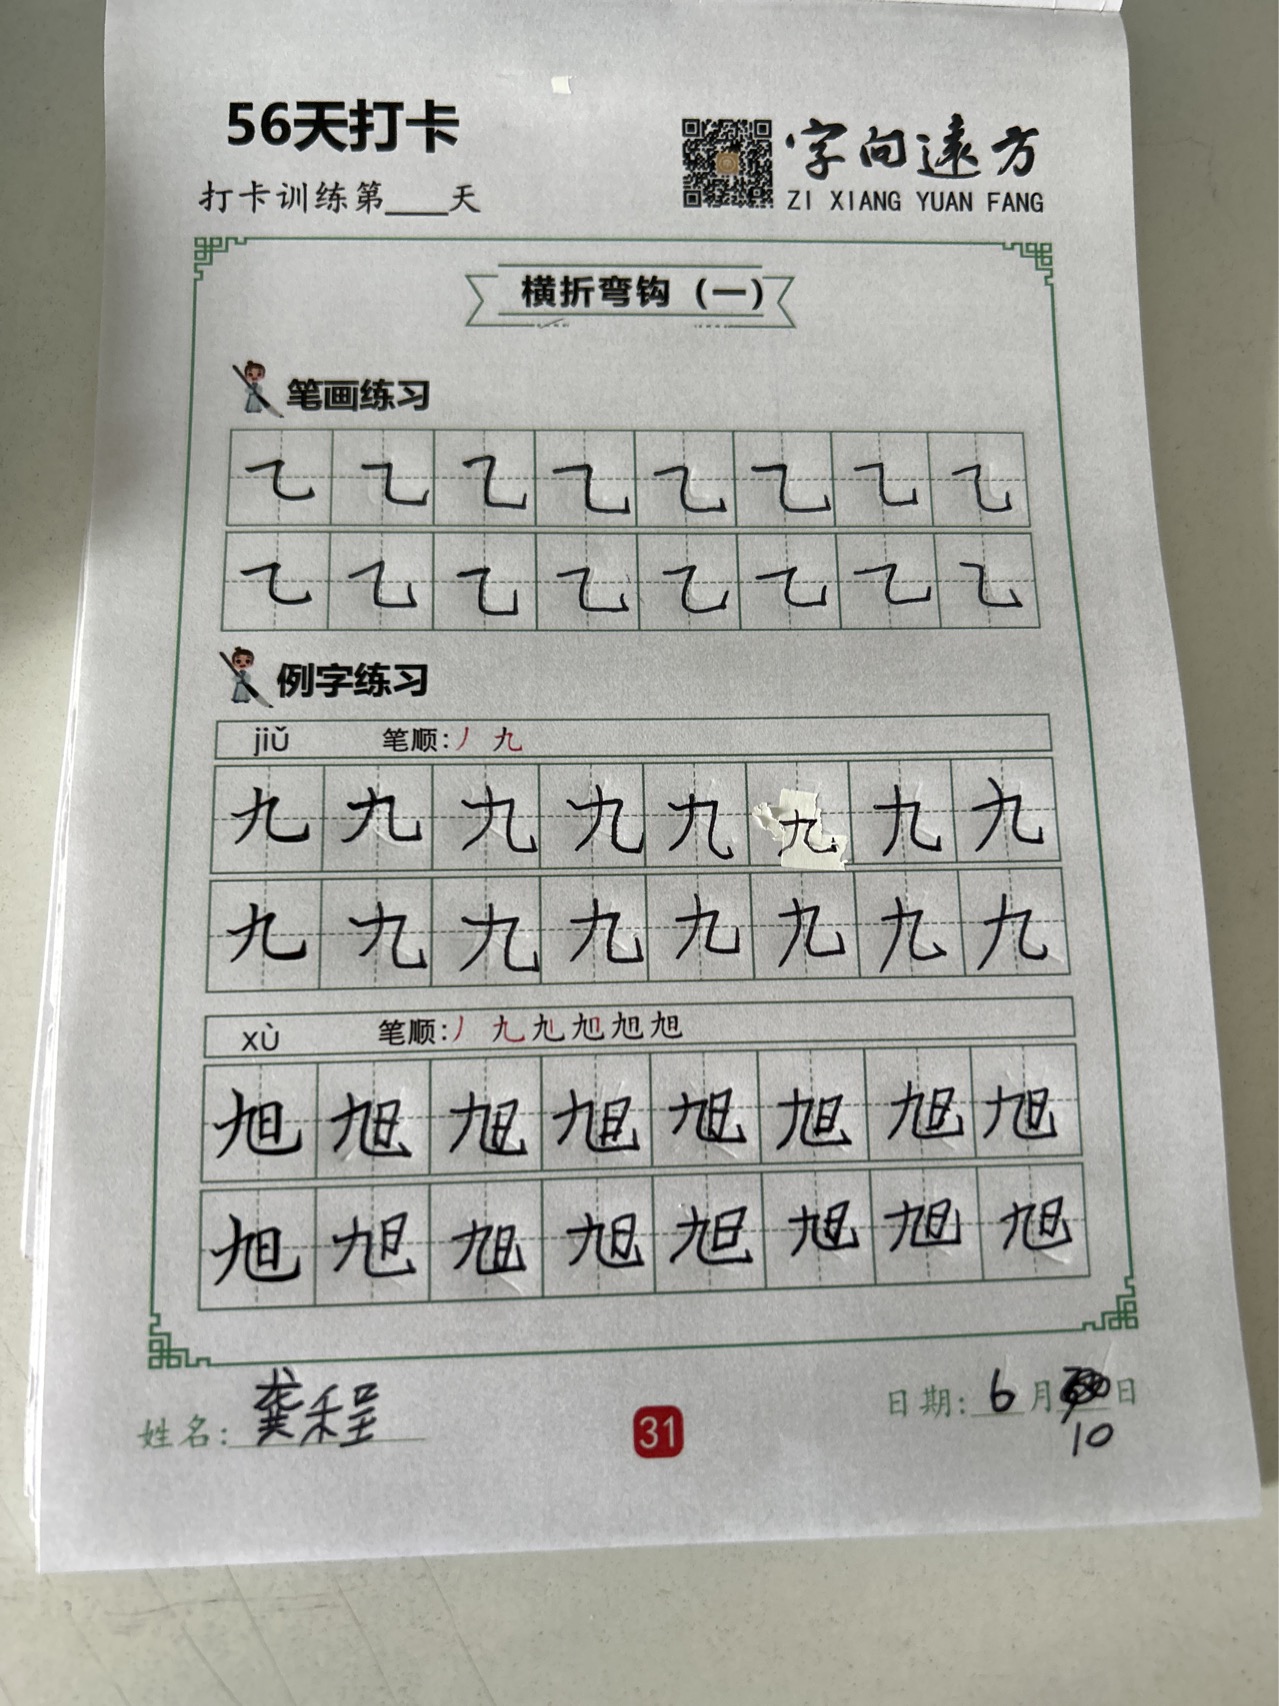 56天打卡
打卡训练第____天
字向远方
ZI XIANG YUAN FANG
横折弯钩（一）
笔画练习
乙 乙 乙 乙 乙 乙 乙 乙
乙 乙 乙 乙 乙 乙 乙 乙
例字练习
jiǔ 笔顺:丿 九
九 九 九 九 九 九 九 九
九 九 九 九 九 九 九 九
xù 笔顺:丿 九 旭 旭 旭 旭
旭 旭 旭 旭 旭 旭 旭 旭
旭 旭 旭 旭 旭 旭 旭 旭
姓名:龚程
31
日期:6月 日
10